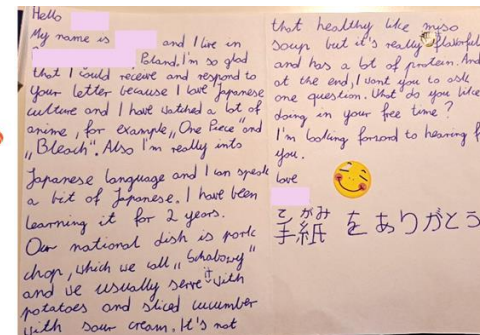 Hello
My name is and I live in
Poland. I'm so glad
that I could receive and respond to
your letter because I love Japanese
culture and I have watched a lot of
anime, for example „One Piece" and
„Bleach". Also I'm really into
Japanese language and I can speak
a bit of Japanese. I have been
learning it for 2 years.
Our national dish is pork
chop, which we call „Schabowy"
and we usually serve it with
potatoes and sliced cucumber
with sour cream. It's not
that healthy like miso
soup but it's really flavorful
and has a lot of protein. And
at the end, I want you to ask
one question. What do you like
doing in your free time?
I'm looking forward to hearing f
you.
love
て がみ
手紙 をありがとう